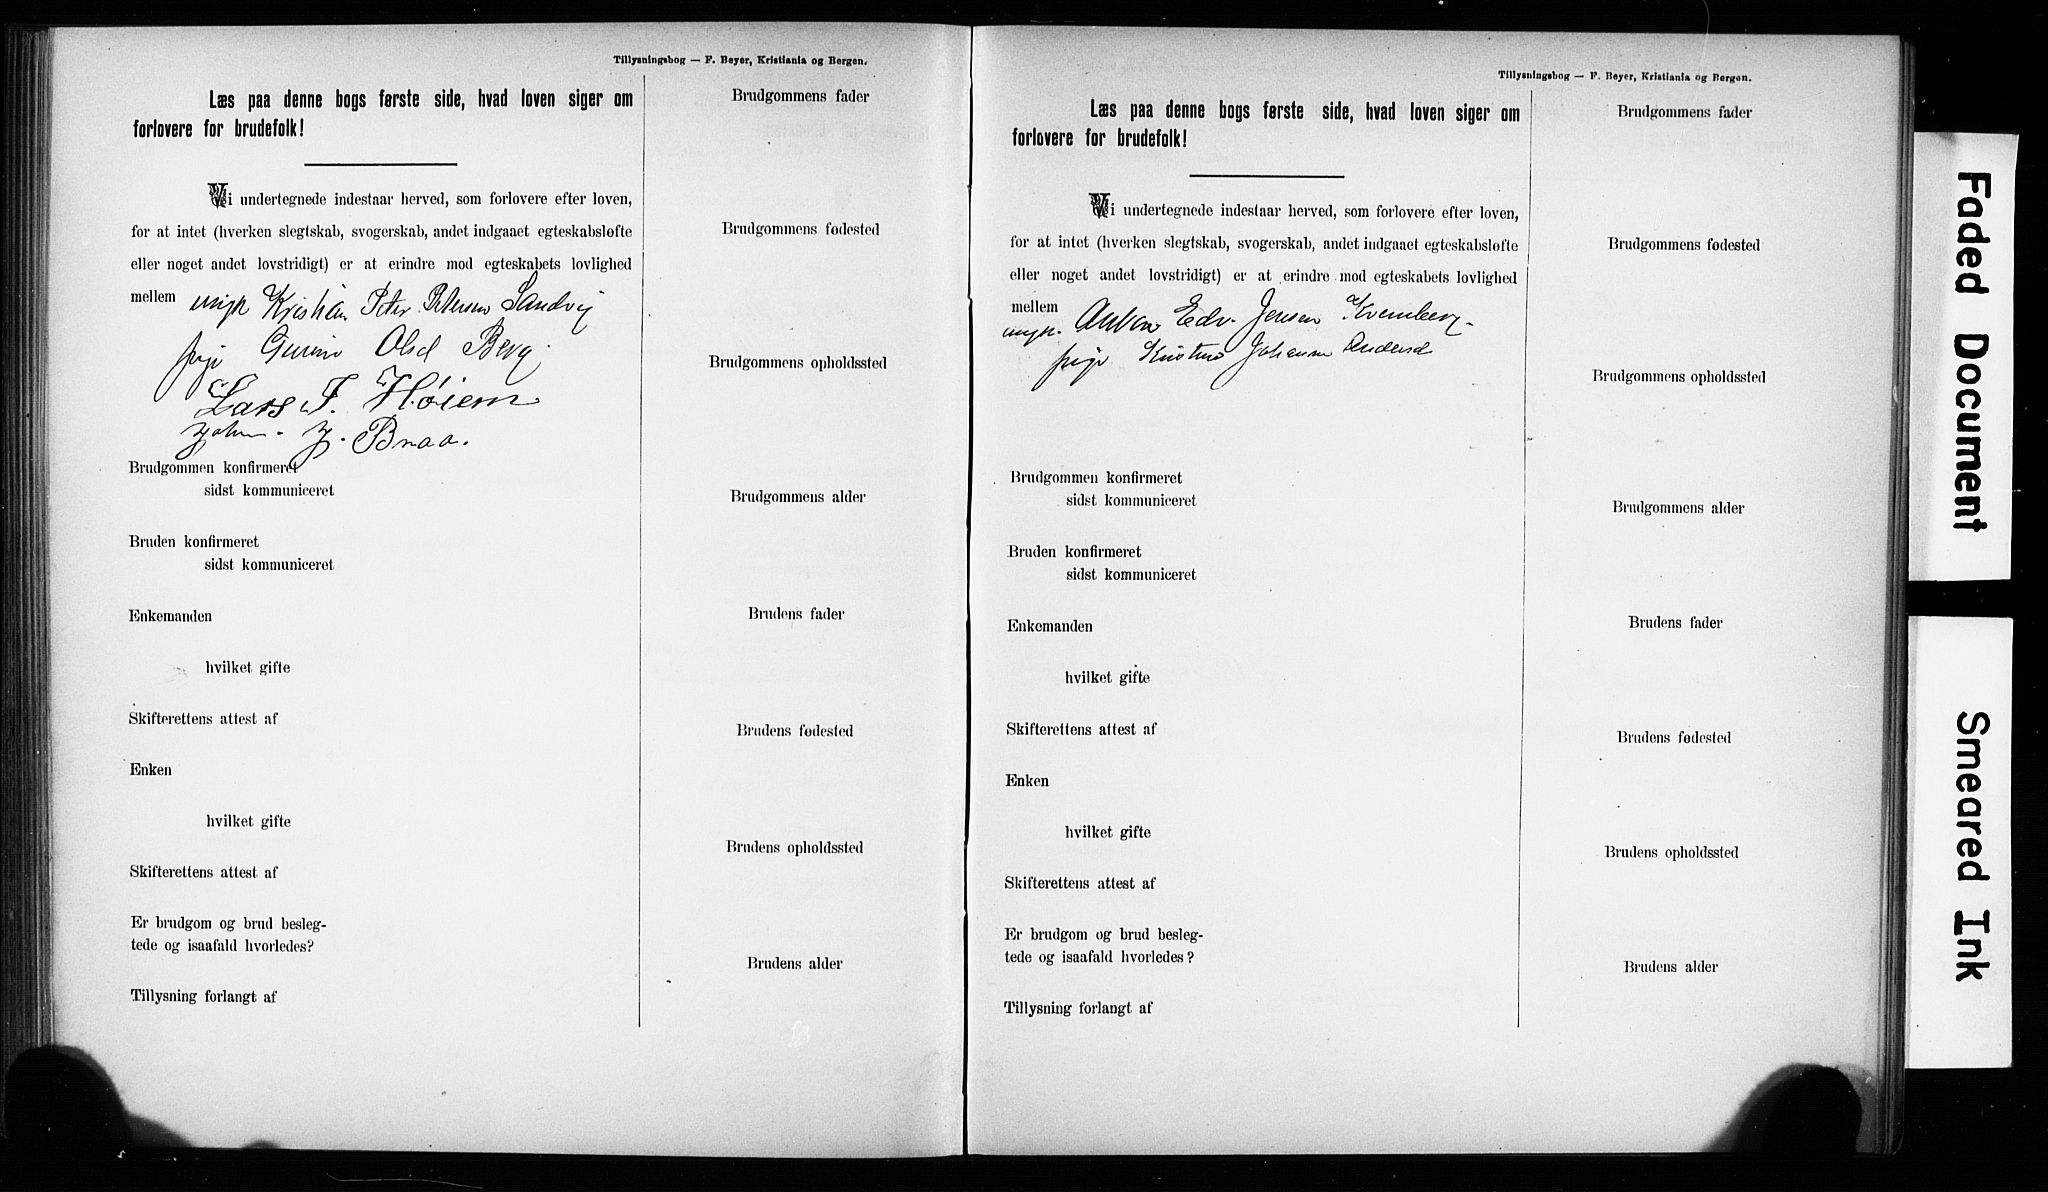 Tillysningsbog — F. Beyer, Kristiania og Bergen.
Læs paa denne bogs første side, hvad loven siger om
forlovere for brudefolk!
Vi undertegnede indestaar herved, som forlovere efter loven,
for at intet (hverken slegtskab, svogerskab, andet indgaaet egteskabsløfte
eller noget andet lovstridigt) er at erindre mod egteskabets lovlighed
mellem ungk Kristian Peter Petersen Sandvig
pige Olsd Berg.
Lars J. Høiem
Johan. J. Braa.
Brudgommen konfirmeret
sidst kommuniceret
Bruden konfirmeret
sidst kommuniceret
Enkemanden
hvilket gifte
Skifterettens attest af
Enken
hvilket gifte
Skifterettens attest af
Er brudgom og brud besleg-
tede og isaafald hvorledes?
Tillysning forlangt af
Brudgommens fader
Brudgommens fødested
Brudgommens opholdssted
Brudgommens alder
Brudens fader
Brudens fødested
Brudens opholdssted
Brudens alder
Tillysningsbog — F. Beyer, Kristiania og Bergen.
Læs paa denne bogs første side, hvad loven siger om
forlovere for brudefolk!
Vi undertegnede indestaar herved, som forlovere efter loven,
for at intet (hverken slegtskab, svogerskab, andet indgaaet egteskabsløfte
eller noget andet lovstridigt) er at erindre mod egteskabets lovlighed
mellem
ungk. Anton Edv. Jensen
pige Johanne Andersd
Brudgommen konfirmeret
sidst kommuniceret
Bruden konfirmeret
sidst kommuniceret
Enkemanden
hvilket gifte
Skifterettens attest af
Enken
hvilket gifte
Skifterettens attest af
Er brudgom og brud besleg-
tede og isaafald hvorledes?
Tillysning forlangt af
Brudgommens fader
Brudgommens fødested
Brudgommens opholdssted
Brudgommens alder
Brudens fader
Brudens fødested
Brudens opholdssted
Brudens alder
Faded Document
Smeared Ink